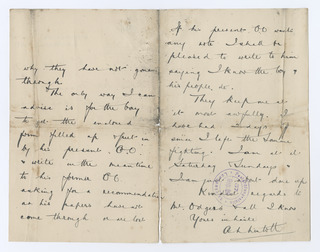 why they have not gone
through.
The only way I can
advise is for the boy
to get the enclosed
form filled up & put in
by his present O.O.
& write in the meantime
to his former O.C
asking for a recommendation
as his papers have not
come through or are lost
If his present O.O wants
any note I shall be
pleased to write to him
saying I know the boy &
his people, &c.
They keep me at
it most awfully. I
have had 2 days
since I left the Somme
fighting. I am at it
Saturday & Sunday &
I am just about done up
Kindest regards to
Mr. Odgers & all I know
Yours in haste